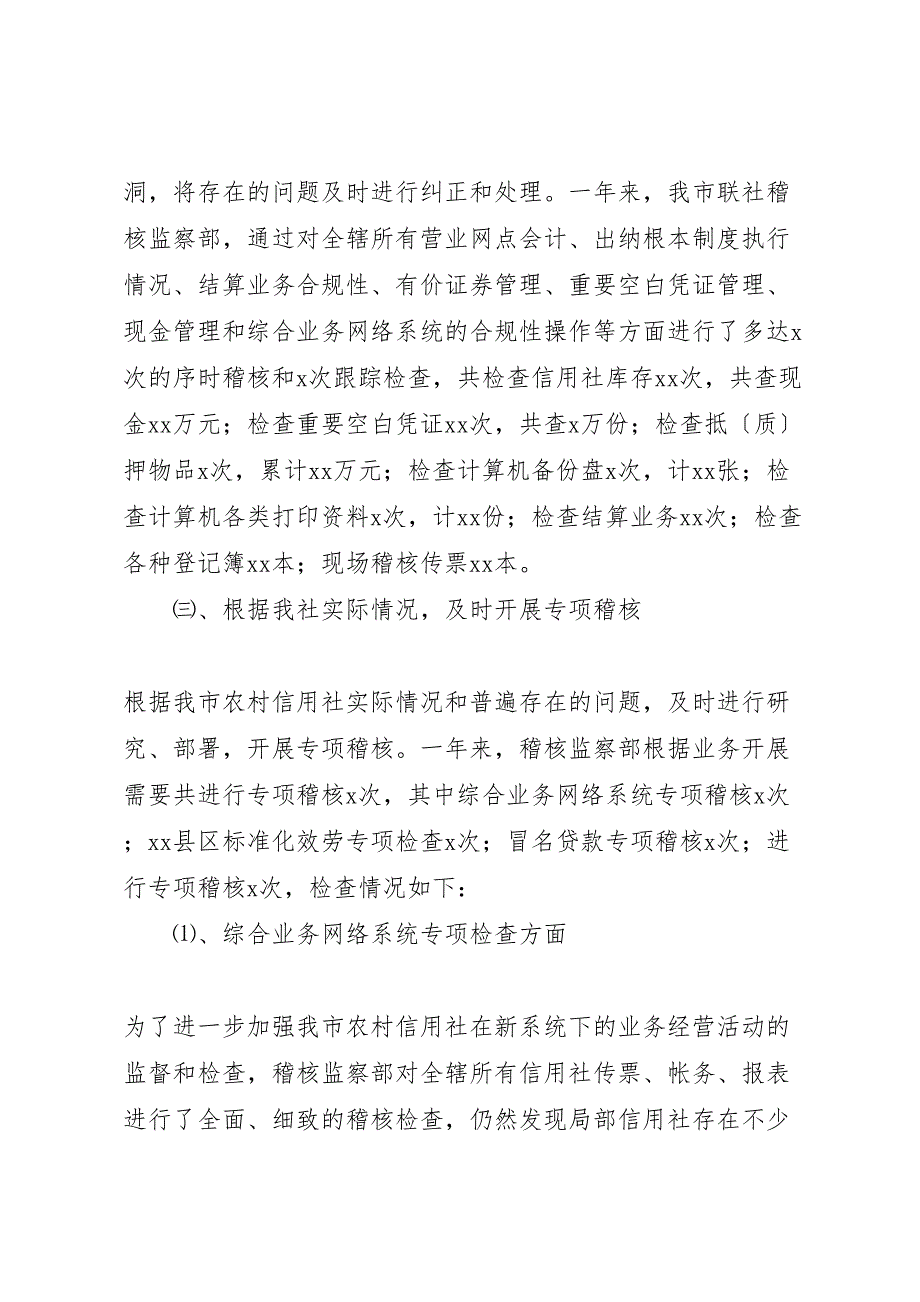 洞，将存在的问题及时进行纠正和处理。一年来，我市联社稽
核监察部，通过对全辖所有营业网点会计、出纳根本制度执行
情况、结算业务合规性、有价证券管理、重要空白凭证管理、
现金管理和综合业务网络系统的合规性操作等方面进行了多达x
次的序时稽核和x次跟踪检查，共检查信用社库存xx次，共查现
金xx万元；检查重要空白凭证xx次，共查x万份；检查抵〔质〕
押物品x次，累计xx万元；检查计算机备份盘x次，计xx张；检
查计算机各类打印资料x次，计xx份；检查结算业务xx次；检查
各种登记簿xx本；现场稽核传票xx本。
㈢、根据我社实际情况，及时开展专项稽核
根据我市农村信用社实际情况和普遍存在的问题，及时进行研
究、部署，开展专项稽核。一年来，稽核监察部根据业务开展
需要共进行专项稽核x次，其中综合业务网络系统专项稽核x次
；xx县区标准化效劳专项检查x次；冒名贷款专项稽核x次；进
行专项稽核x次，检查情况如下：
⑴、综合业务网络系统专项检查方面
为了进一步加强我市农村信用社在新系统下的业务经营活动的
监督和检查，稽核监察部对全辖所有信用社传票、帐务、报表
进行了全面、细致的稽核检查，仍然发现局部信用社存在不少